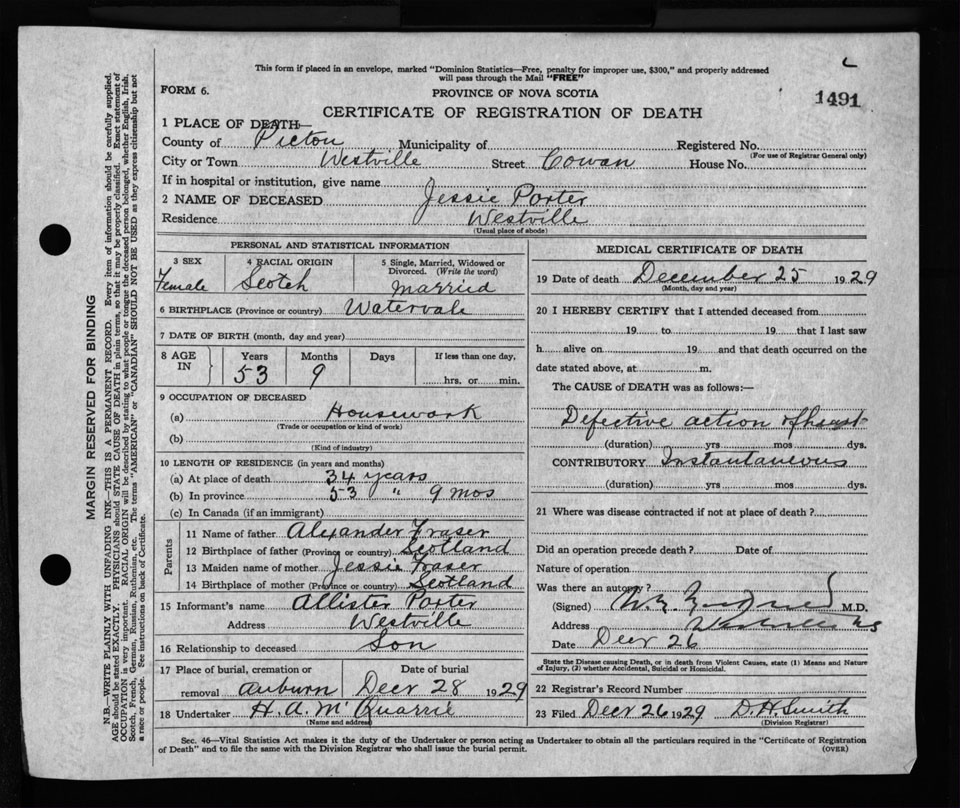 This form if placed in an envelope, marked "Dominion Statistics—Free, penalty for improper use, $300," and properly addressed
will pass through the Mail "FREE"
FORM 6.
PROVINCE OF NOVA SCOTIA
1491
CERTIFICATE OF REGISTRATION OF DEATH
1 PLACE OF DEATH—
County of Pictou Municipality of Registered No.
(For use of Registrar General only)
City or Town Westville Street Cowan House No.
If in hospital or institution, give name
2 NAME OF DECEASED Jessie Porter
Residence Westville
(Usual place of abode)
PERSONAL AND STATISTICAL INFORMATION
3 SEX 4 RACIAL ORIGIN 5 Single, Married, Widowed or
Divorced. (Write the word)
Female Scotch Married
6 BIRTHPLACE (Province or country) Watervale
7 DATE OF BIRTH (month, day and year)
8 AGE IN Years Months Days If less than one day,
53 9 hrs. or min.
9 OCCUPATION OF DECEASED
(a) Housework
(Trade or occupation or kind of work)
(b)
(Kind of industry)
10 LENGTH OF RESIDENCE (in years and months)
(a) At place of death 34 years
(b) In province 53 " 9 mos
(c) In Canada (if an immigrant)
Parents
11 Name of father Alexander Fraser
12 Birthplace of father (Province or country) Scotland
13 Maiden name of mother Jessie Fraser
14 Birthplace of mother (Province or country) Scotland
15 Informant's name Allister Porter
Address Westville
16 Relationship to deceased Son
17 Place of burial, cremation or Date of burial
removal Auburn Decr 28 1929
18 Undertaker H. A. McQuarrie
(Name and address)
MEDICAL CERTIFICATE OF DEATH
19 Date of death December 25 1929
(Month, day and year)
20 I HEREBY CERTIFY that I attended deceased from
19 to 19 that I last saw
h alive on 19 and that death occurred on the
date stated above, at m.
The CAUSE of DEATH was as follows:—
Defective action of heart
(duration) yrs mos dys.
CONTRIBUTORY Instantaneous
(duration) yrs. mos. dys.
21 Where was disease contracted if not at place of death?
Did an operation precede death? Date of
Nature of operation
Was there an autopsy?
(Signed) M.D.
Address Westville NS
Date Decr 26
State the Disease causing Death, or in death from Violent Causes, state (1) Means and Nature
of Injury, (2) whether Accidental, Suicidal or Homicidal.
22 Registrar's Record Number
23 Filed Decr 26 1929 D. H. Smith
(Division Registrar)
Sec. 46—Vital Statistics Act makes it the duty of the Undertaker or person acting as Undertaker to obtain all the particulars required in the "Certificate of Registration
of Death" and to file the same with the Division Registrar who shall issue the burial permit.
(OVER)
MARGIN RESERVED FOR BINDING
N.B.—WRITE PLAINLY WITH UNFADING INK—THIS IS A PERMANENT RECORD. Every item of information should be carefully supplied.
AGE should be stated EXACTLY. PHYSICIANS should STATE CAUSE OF DEATH in plain terms, so that it may be properly classified. Exact statement of
OCCUPATION is very important. RACIAL ORIGIN will be described by stating to what people or tongue the deceased person belonged, whether English, Irish,
Scotch, French, German, Russian, Ruthenian, etc. The terms "AMERICAN" or "CANADIAN" SHOULD NOT BE USED as they express citizenship but not
a race or people. See instructions on back of Certificate.